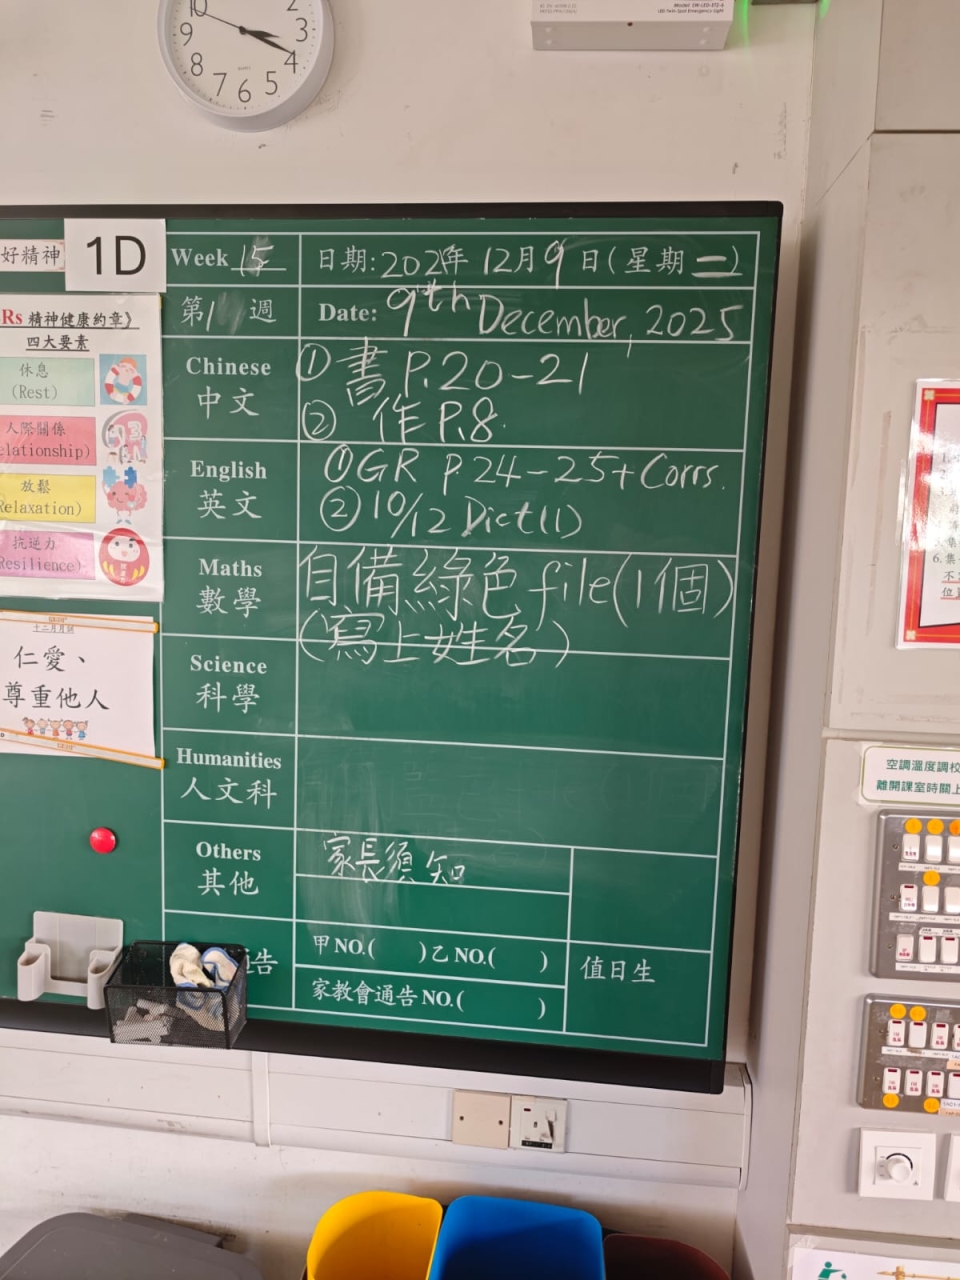 10 2
9 3
8 4
7 6 5
好精神
1D
Week 15
日期: 2025年 12月 9 日(星期二)
第1 週
Date: 9th December, 2025
Rs 精神健康約章》
四大要素
休息
(Rest)
人際關係
elationship)
放鬆
Relaxation)
抗逆力
Resilience)
Chinese
中文
① 書 P.20-21
② 作 P.8.
English
英文
① GR P.24-25+Corrs.
② 10/12 Dict(1)
Maths
數學
自備綠色 file(1個)
(寫上姓名)
Science
科學
仁愛、
尊重他人
Humanities
人文科
Others
其他
家長須知
告
甲 NO.( ) 乙 NO.( )
家教會通告 NO.( )
值日生
空調溫度調校
離開課室時關上